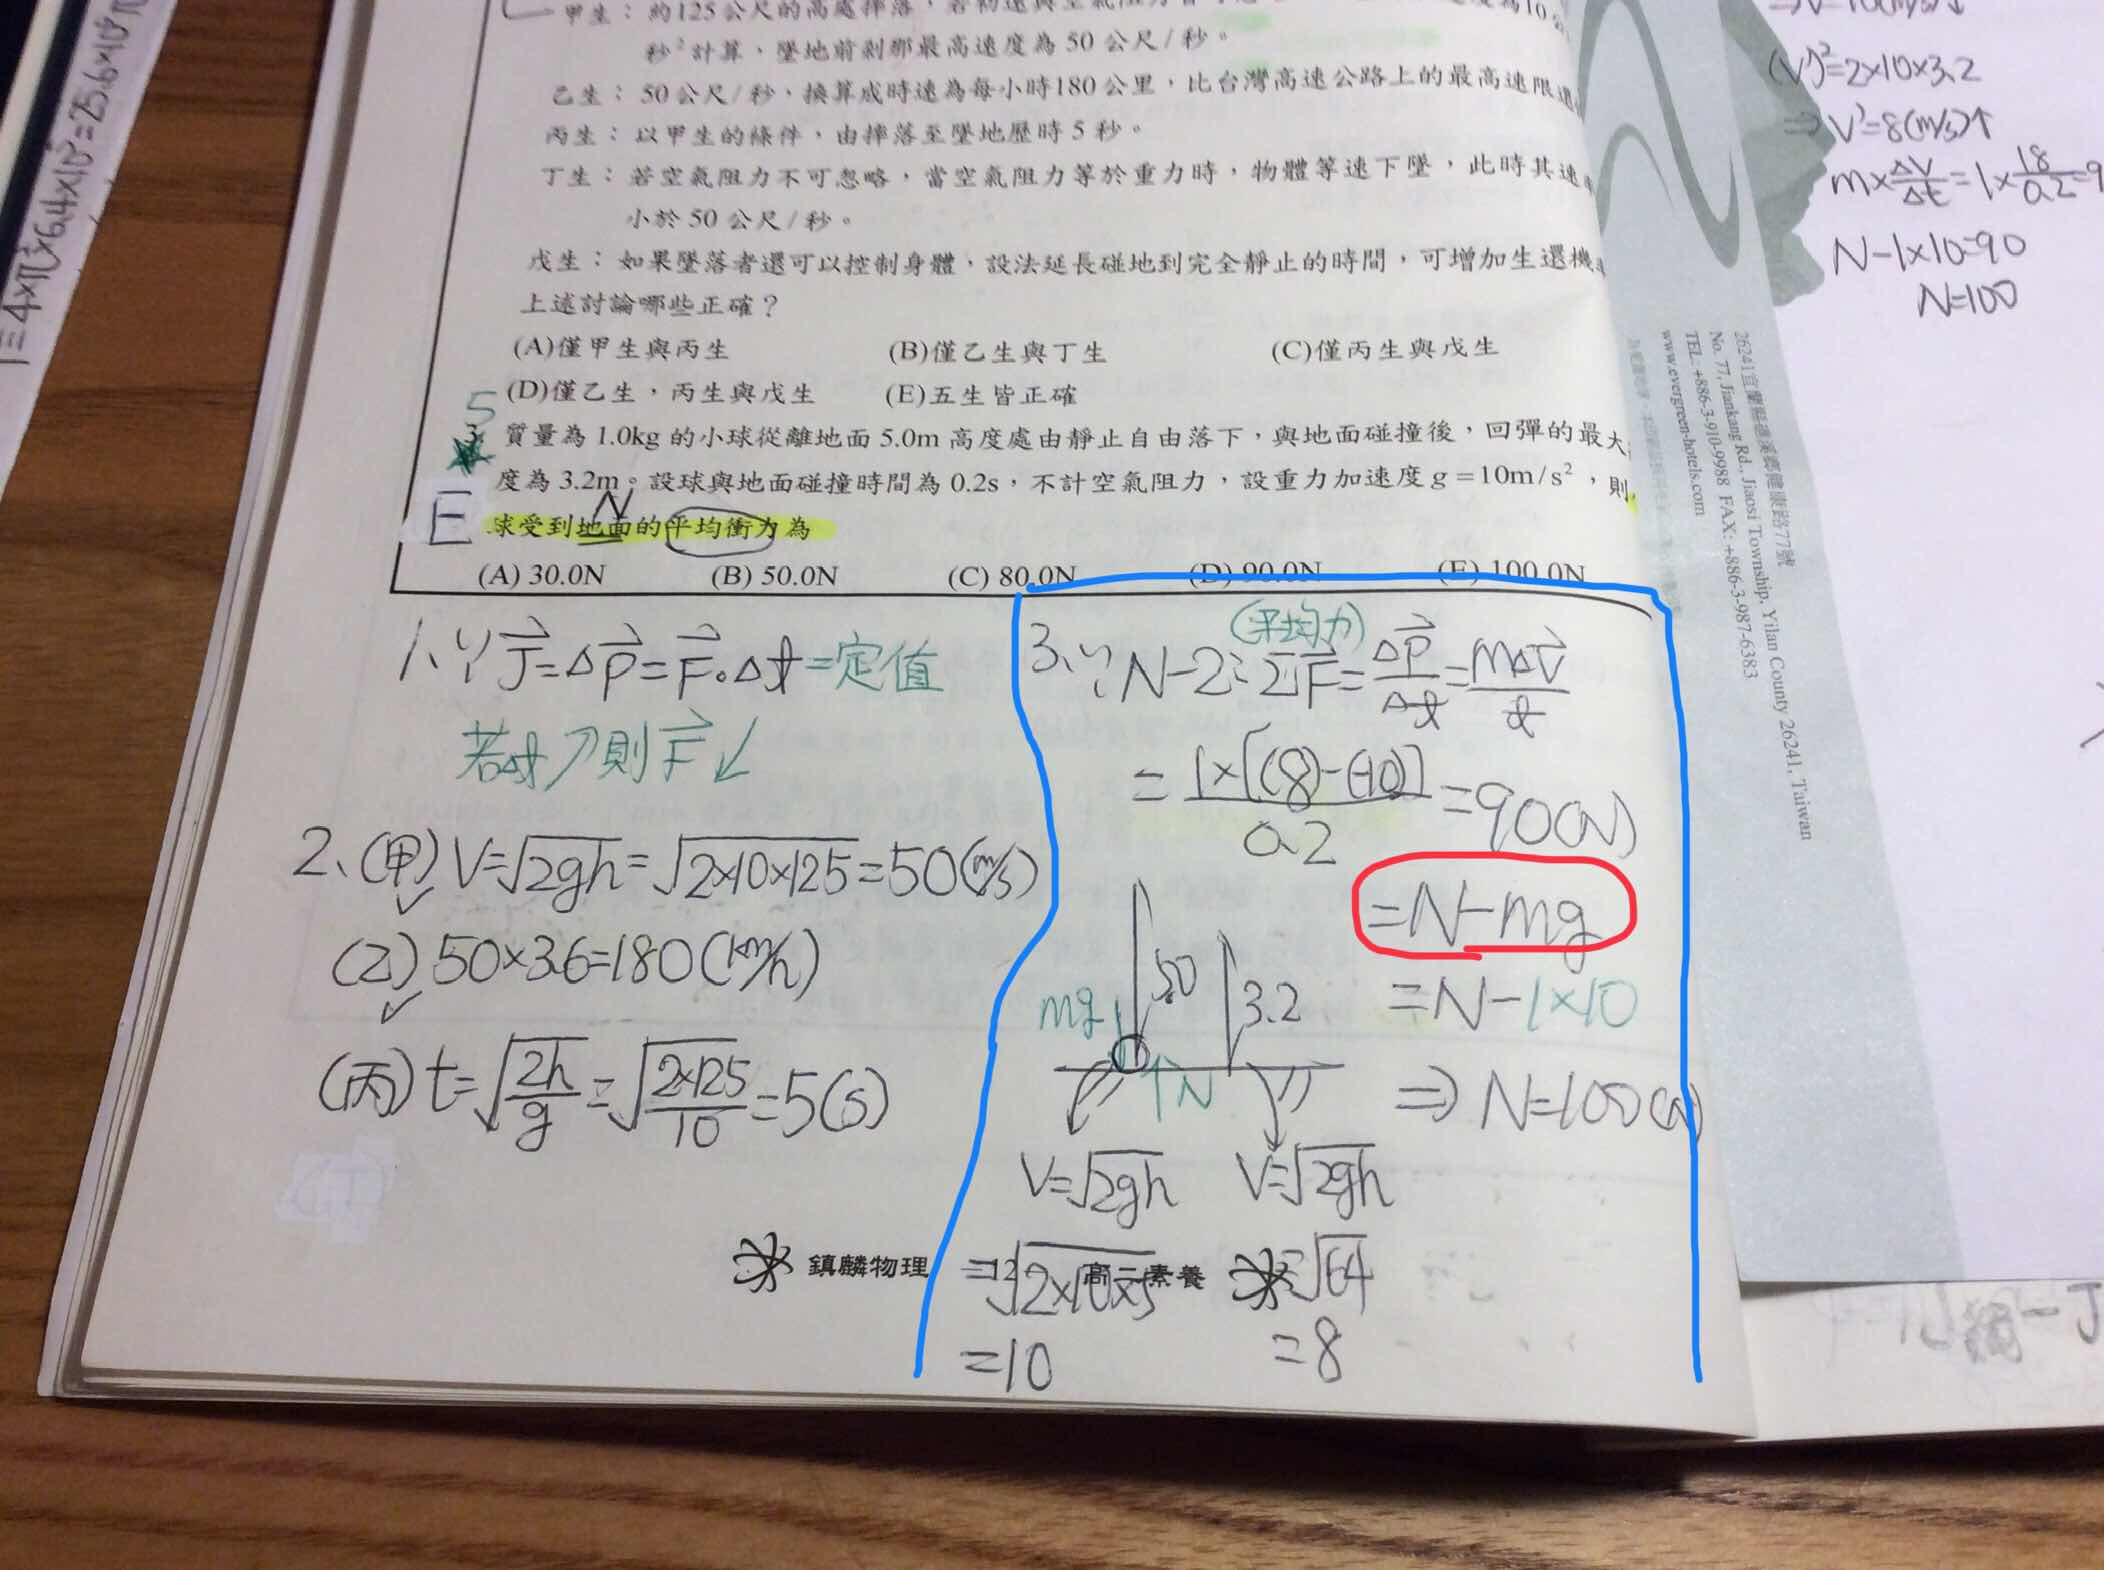 甲生：約125公尺的高處摔落，若初速與空氣阻力皆
秒²計算，墜地前剎那最高速度為 50 公尺/秒。
乙生：50公尺/秒，換算成時速為每小時180公里，比台灣高速公路上的最高速限還
丙生：以甲生的條件，由摔落至墜地歷時 5 秒。
丁生：若空氣阻力不可忽略，當空氣阻力等於重力時，物體等速下墜，此時其速
小於 50 公尺/秒。
戊生：如果墜落者還可以控制身體，設法延長碰地到完全靜止的時間，可增加生還機
上述討論哪些正確？
(A)僅甲生與丙生 (B)僅乙生與丁生 (C)僅丙生與戊生
(D)僅乙生，丙生與戊生 (E)五生皆正確
5
3. 質量為 1.0kg 的小球從離地面 5.0m 高度處由靜止自由落下，與地面碰撞後，回彈的最大
度為 3.2m。設球與地面碰撞時間為 0.2s，不計空氣阻力，設重力加速度 g=10m/s²，則
N
E 球受到地面的平均衝力為
(A) 30.0N (B) 50.0N (C) 80.0N (D) 90.0N (E) 100.0N
1、∵ J=ΔP=F·Δt=定值
若Δt↗則F↙
2、(甲) V=√2gh=√2×10×125=50(m/s)
(乙) 50×3.6=180(km/h)
(丙) t=√2h/g=√2×125/10=5(s)
(平均力)
3、∵ N-2: ΣF=ΔP/Δt=mΔV/t
=1×[(8)-(-10)]/0.2=90(N)
=N-mg
=N-1×10
⇒ N=100(N)
5.0 3.2
mg N
V=√2gh V=√2gh
=√2×10×5 =√64
=10 =8
鎮麟物理 12 高二素養
(V')²=2×10×3.2
⇒V'=8(m/s)↑
m×ΔV/Δt=1×18/0.2=9
N-1×10=90
N=100
26241宜蘭縣礁溪鄉健康路77號
No. 77, Jiankang Rd., Jiaosi Township, Yilan County 26241, Taiwan
TEL: +886-3-910-9988 FAX: +886-3-987-6383
www.evergreen-hotels.com